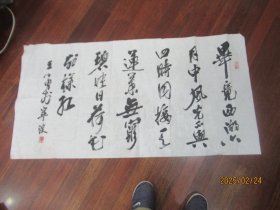 畢竟西湖六
月中風光不與
四時同接天
蓮葉無窮
碧映日荷花
別樣紅
2025/02/24